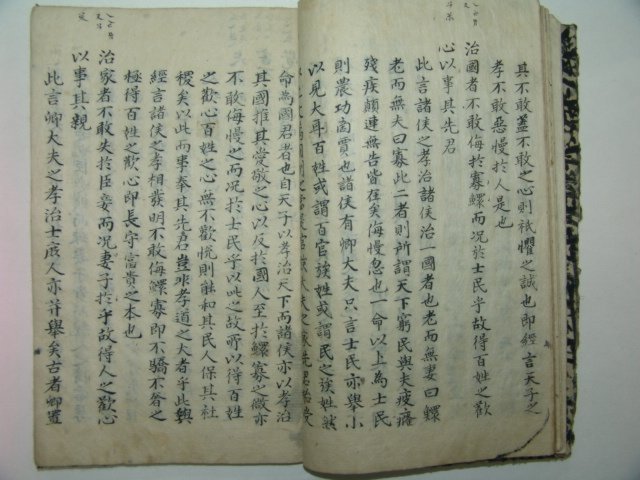 具不敢盖不敢之心則祇懼之誠也即經言天子之
孝不敢惡慢於人是也
治國者不敢侮於寡鰥而况於士民乎故得百姓之歡
心以事其先君
此言諸侯之孝治諸侯治一國者也老而無妻曰鰥
老而無夫曰寡此二者則所謂天下窮民與夫疲癃
残疾顛連無告皆在矣侮慢忽也一命以上為士民
則農功啇賈也諸侯有卿大夫只言士民亦舉小
以見大耳百姓或謂百官族姓或謂民之族姓
命為國君者也自天子以孝治天下而諸侯亦以孝治
其國推其愛敬之心以反於國人至於鰥寡之微亦
不敢侮慢之而况於士民乎以此之故所以得百姓
之歡心百姓之心無不歡悦則能和其民人保其社
稷矣以此而事奉其先君豈非孝道之大者乎此與
經言諸侯之孝相發明不敢侮鰥寡即不驕不奢之
極得百姓之歡心即長守富貴之本也
治家者不敢失於臣妾而况妻子於乎故得人之歡心
以事其親
此言卿大夫之孝治士庻人亦并舉矣古者卿置